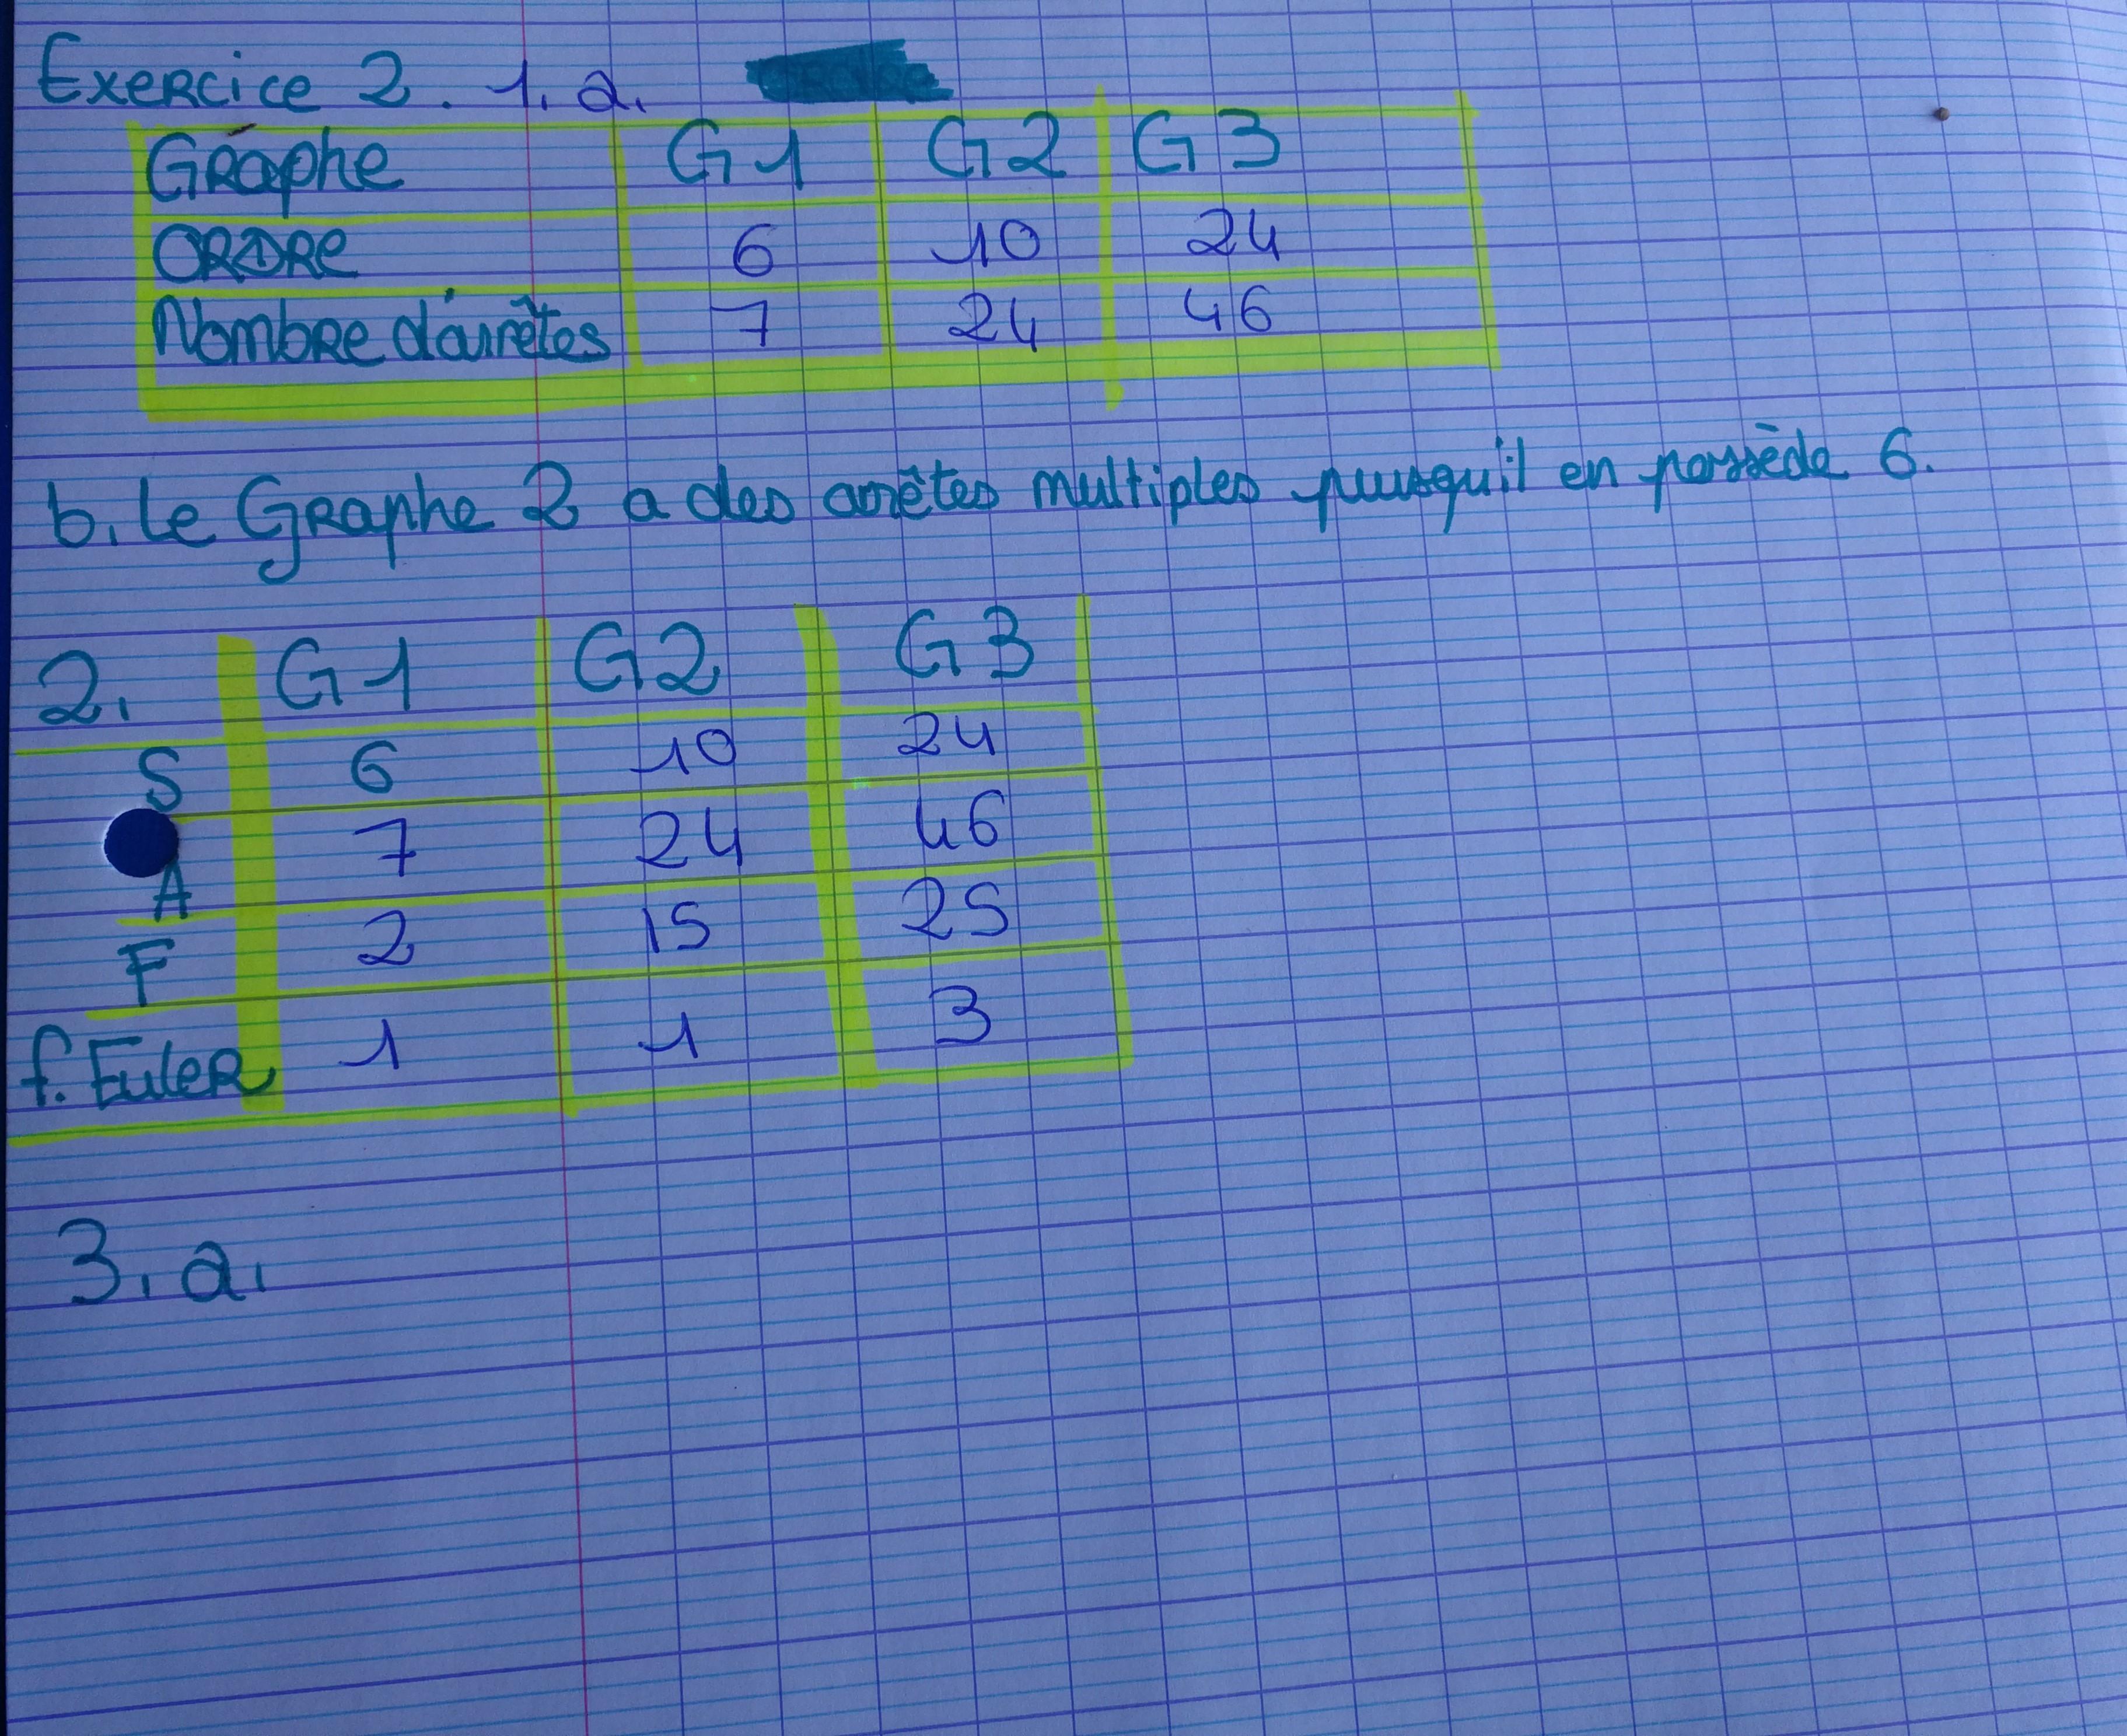 Exercice 2. 1. a.
Graphe G1 G2 G3
ORDRE 6 10 24
Nombre d'arrêtes 7 24 46
b. Le Graphe 2 a des arrêtes multiples puisqu'il en possède 6.
2. G1 G2 G3
S 6 10 24
A 7 24 46
F 2 15 25
f. Euler 1 1 3
3. a.